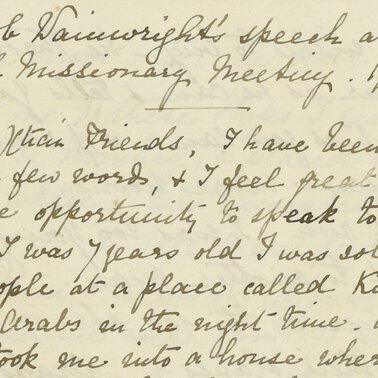 b Wainwright's speech a
Missionary Meeting.
Xtian Friends, I have been
few words, & I feel great
opportunity to speak to
I was 7 years old I was sol
ople at a place called K
Arabs in the night time.
took me into a house wher